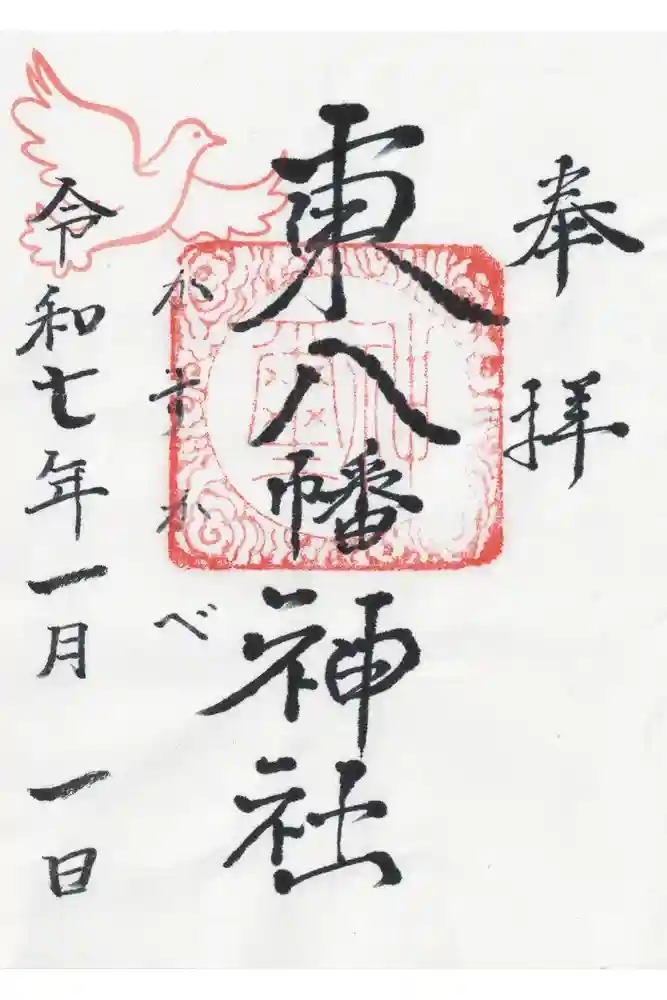 奉拝
東八幡神社
かすかべ
令和七年一月 一日